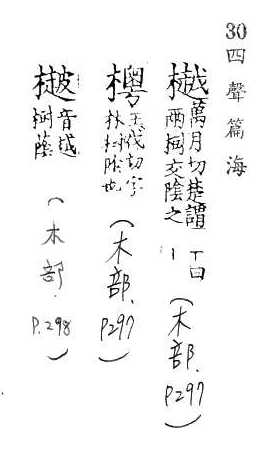 30 四聲篇海
樾 萬月切楚謂兩樹交陰之丅曰丨 (木部. P297)
王伐切字林樹陰也 (木部. P297)
音越樹蔭 (木部. P.298)